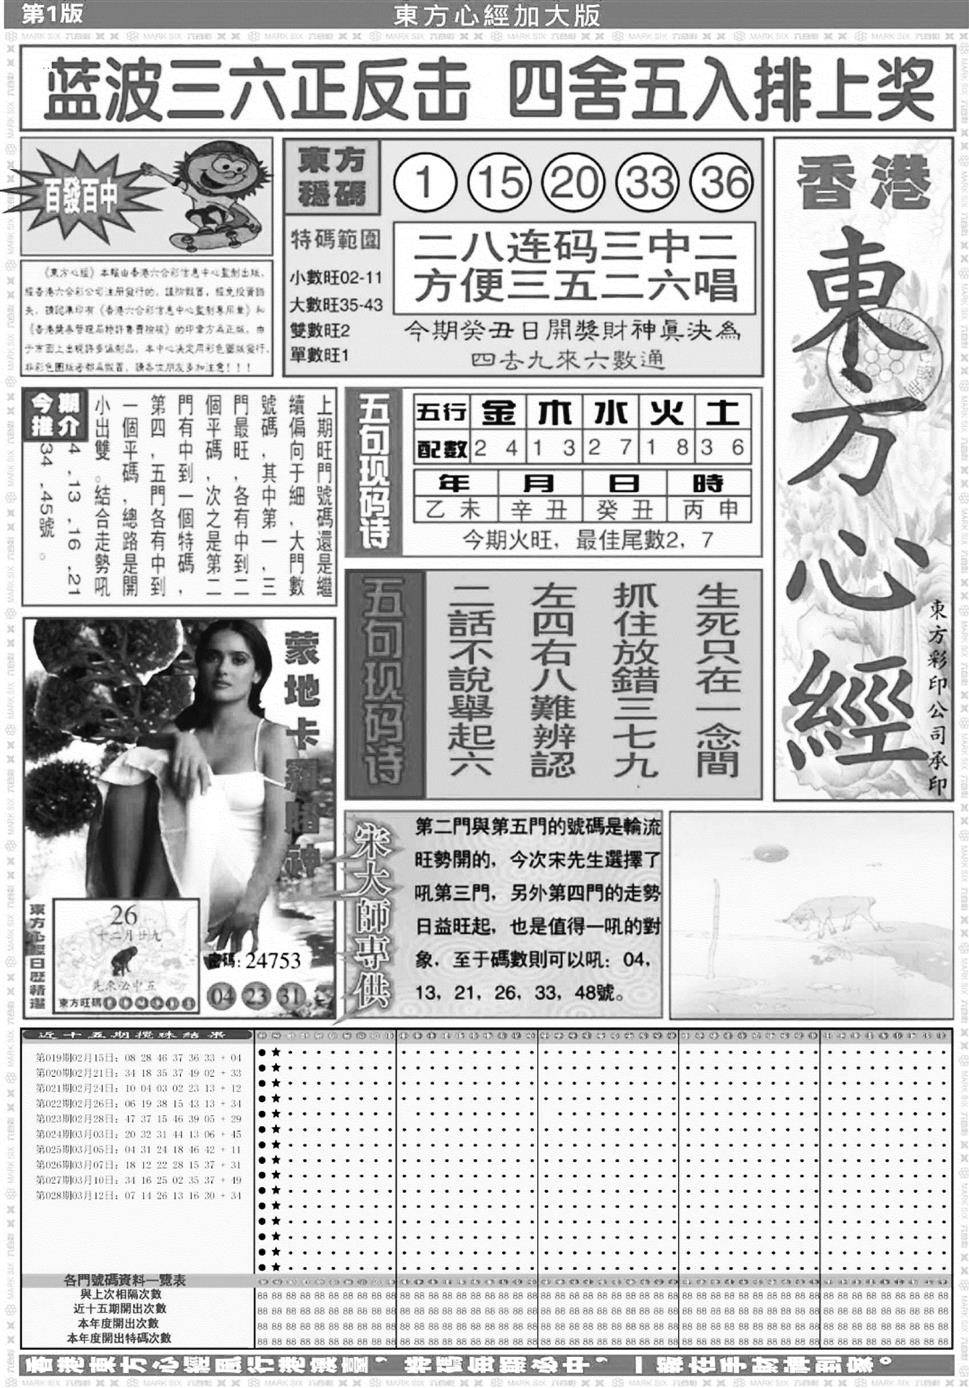 第1版
東方心經加大版
蓝波三六正反击 四舍五入排上奖
百發百中
《東方心經》本報由香港六合彩信息中心監制出版，
經香港六合彩公司注册發行的，謹防假冒，經免投資損
失，請認準印有《香港六合彩信息中心監制專用章》和
《香港獎券管理局特許售賣檢核》的印章方爲正版，由
于市面上出現許多僞制品，本中心決定用彩色圖版發行，
非彩色圖版者都爲假冒，請各位朋友多加注意！！！
東方
穩碼
1 15 20 33 36
特碼範圍
小數旺02-11
大數旺35-43
雙數旺2
單數旺1
二八连码三中二
方便三五二六唱
今期癸丑日開獎財神眞決為
四去九來六數通
香港
東方心經
東方彩印公司承印
今期
推介
上期旺門號碼還是繼
續偏向于細，大門數
號碼，其中第一，三
門最旺，各有中到二
個平碼，次之是第二
門有中到一個特碼，
第四，五門各有中到
一個平碼，總路是開
小出雙。結合走勢吼
4,13,16,21
34,45號。
五句现码诗
五行 金 木 水 火 土
配數 2 4 1 3 2 7 1 8 3 6
年 月 日 時
乙未 辛丑 癸丑 丙申
今期火旺，最佳尾數2，7
五句现码诗
生死只在一念間
抓住放錯三七九
左四右八難辨認
二話不說舉起六
蒙地卡羅賭神
東方心經日歷精選
26
十二月廿九
先來必中五
東方旺碼
密碼：24753
04 23 31
宋大師專供
第二門與第五門的號碼是輪流
旺勢開的，今次宋先生選擇了
吼第三門，另外第四門的走勢
日益旺起，也是值得一吼的對
象，至于碼數則可以吼：04，
13，21，26，33，48號。
近十五期攪珠結果
第019期02月15日：08 28 46 37 36 33 + 04
第020期02月21日：34 18 35 37 49 02 + 33
第021期02月24日：10 04 03 02 23 13 + 12
第022期02月26日：06 19 38 15 43 13 + 34
第023期02月28日：47 37 15 46 39 05 + 29
第024期03月03日：20 32 31 44 13 06 + 45
第025期03月05日：04 31 24 18 46 42 + 11
第026期03月07日：18 12 22 28 15 37 + 31
第027期03月10日：34 16 25 02 35 37 + 49
第028期03月12日：07 14 26 13 16 30 + 34
各門號碼資料一覽表
與上次相隔次數
近十五期開出次數
本年度開出次數
本年度開出特碼次數
香港東方心經風行港澳臺，特碼每期必中，一報在手財神到家。